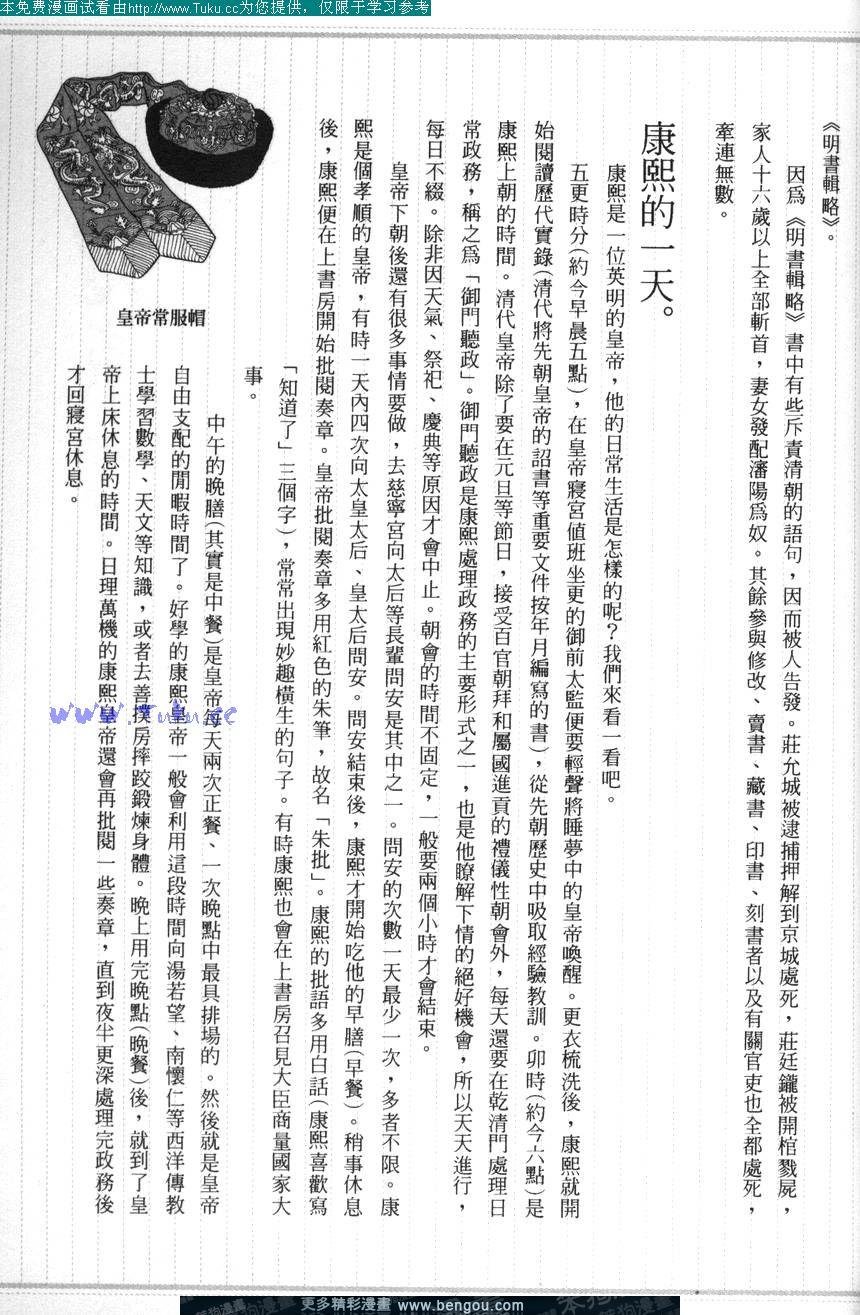 本免费漫画试看由http://www.Tuku.cc为您提供，仅限于学习参考
《明書輯略》。
因爲《明書輯略》書中有些斥責清朝的語句，因而被人告發。莊允城被逮捕押解到京城處死，莊廷鑨被開棺戮屍，
家人十六歲以上全部斬首，妻女發配瀋陽爲奴。其餘參與修改、賣書、藏書、印書、刻書者以及有關官吏也全都處死，
牽連無數。
康熙的一天。
康熙是一位英明的皇帝，他的日常生活是怎樣的呢？我們來看一看吧。
五更時分（約今早晨五點），在皇帝寢宮值班坐更的御前太監便要輕聲將睡夢中的皇帝喚醒。更衣梳洗後，康熙就開
始閱讀歷代實錄（清代將先朝皇帝的詔書等重要文件按年月編寫的書），從先朝歷史中吸取經驗教訓。卯時（約今六點）是
康熙上朝的時間。清代皇帝除了要在元旦等節日，接受百官朝拜和屬國進貢的禮儀性朝會外，每天還要在乾清門處理日
常政務，稱之爲「御門聽政」。御門聽政是康熙處理政務的主要形式之一，也是他瞭解下情的絕好機會，所以天天進行，
每日不綴。除非因天氣、祭祀、慶典等原因才會中止。朝會的時間不固定，一般要兩個小時才會結束。
皇帝下朝後還有很多事情要做，去慈寧宮向太后等長輩問安是其中之一。問安的次數一天最少一次，多者不限。康
熙是個孝順的皇帝，有時一天內四次向太皇太后、皇太后問安。問安結束後，康熙才開始吃他的早膳（早餐）。稍事休息
後，康熙便在上書房開始批閱奏章。皇帝批閱奏章多用紅色的朱筆，故名「朱批」。康熙的批語多用白話（康熙喜歡寫
「知道了」三個字），常常出現妙趣橫生的句子。有時康熙也會在上書房召見大臣商量國家大
事。
中午的晚膳（其實是中餐）是皇帝每天兩次正餐、一次晚點中最具排場的。然後就是皇帝
自由支配的閒暇時間了。好學的康熙皇帝一般會利用這段時間向湯若望、南懷仁等西洋傳教
士學習數學、天文等知識，或者去善撲房摔跤鍛煉身體。晚上用完晚點（晚餐）後，就到了皇
帝上床休息的時間。日理萬機的康熙皇帝還會再批閱一些奏章，直到夜半更深處理完政務後
才回寢宮休息。
皇帝常服帽
www.Tuku.cc
更多精彩漫畫 www.bengou.com